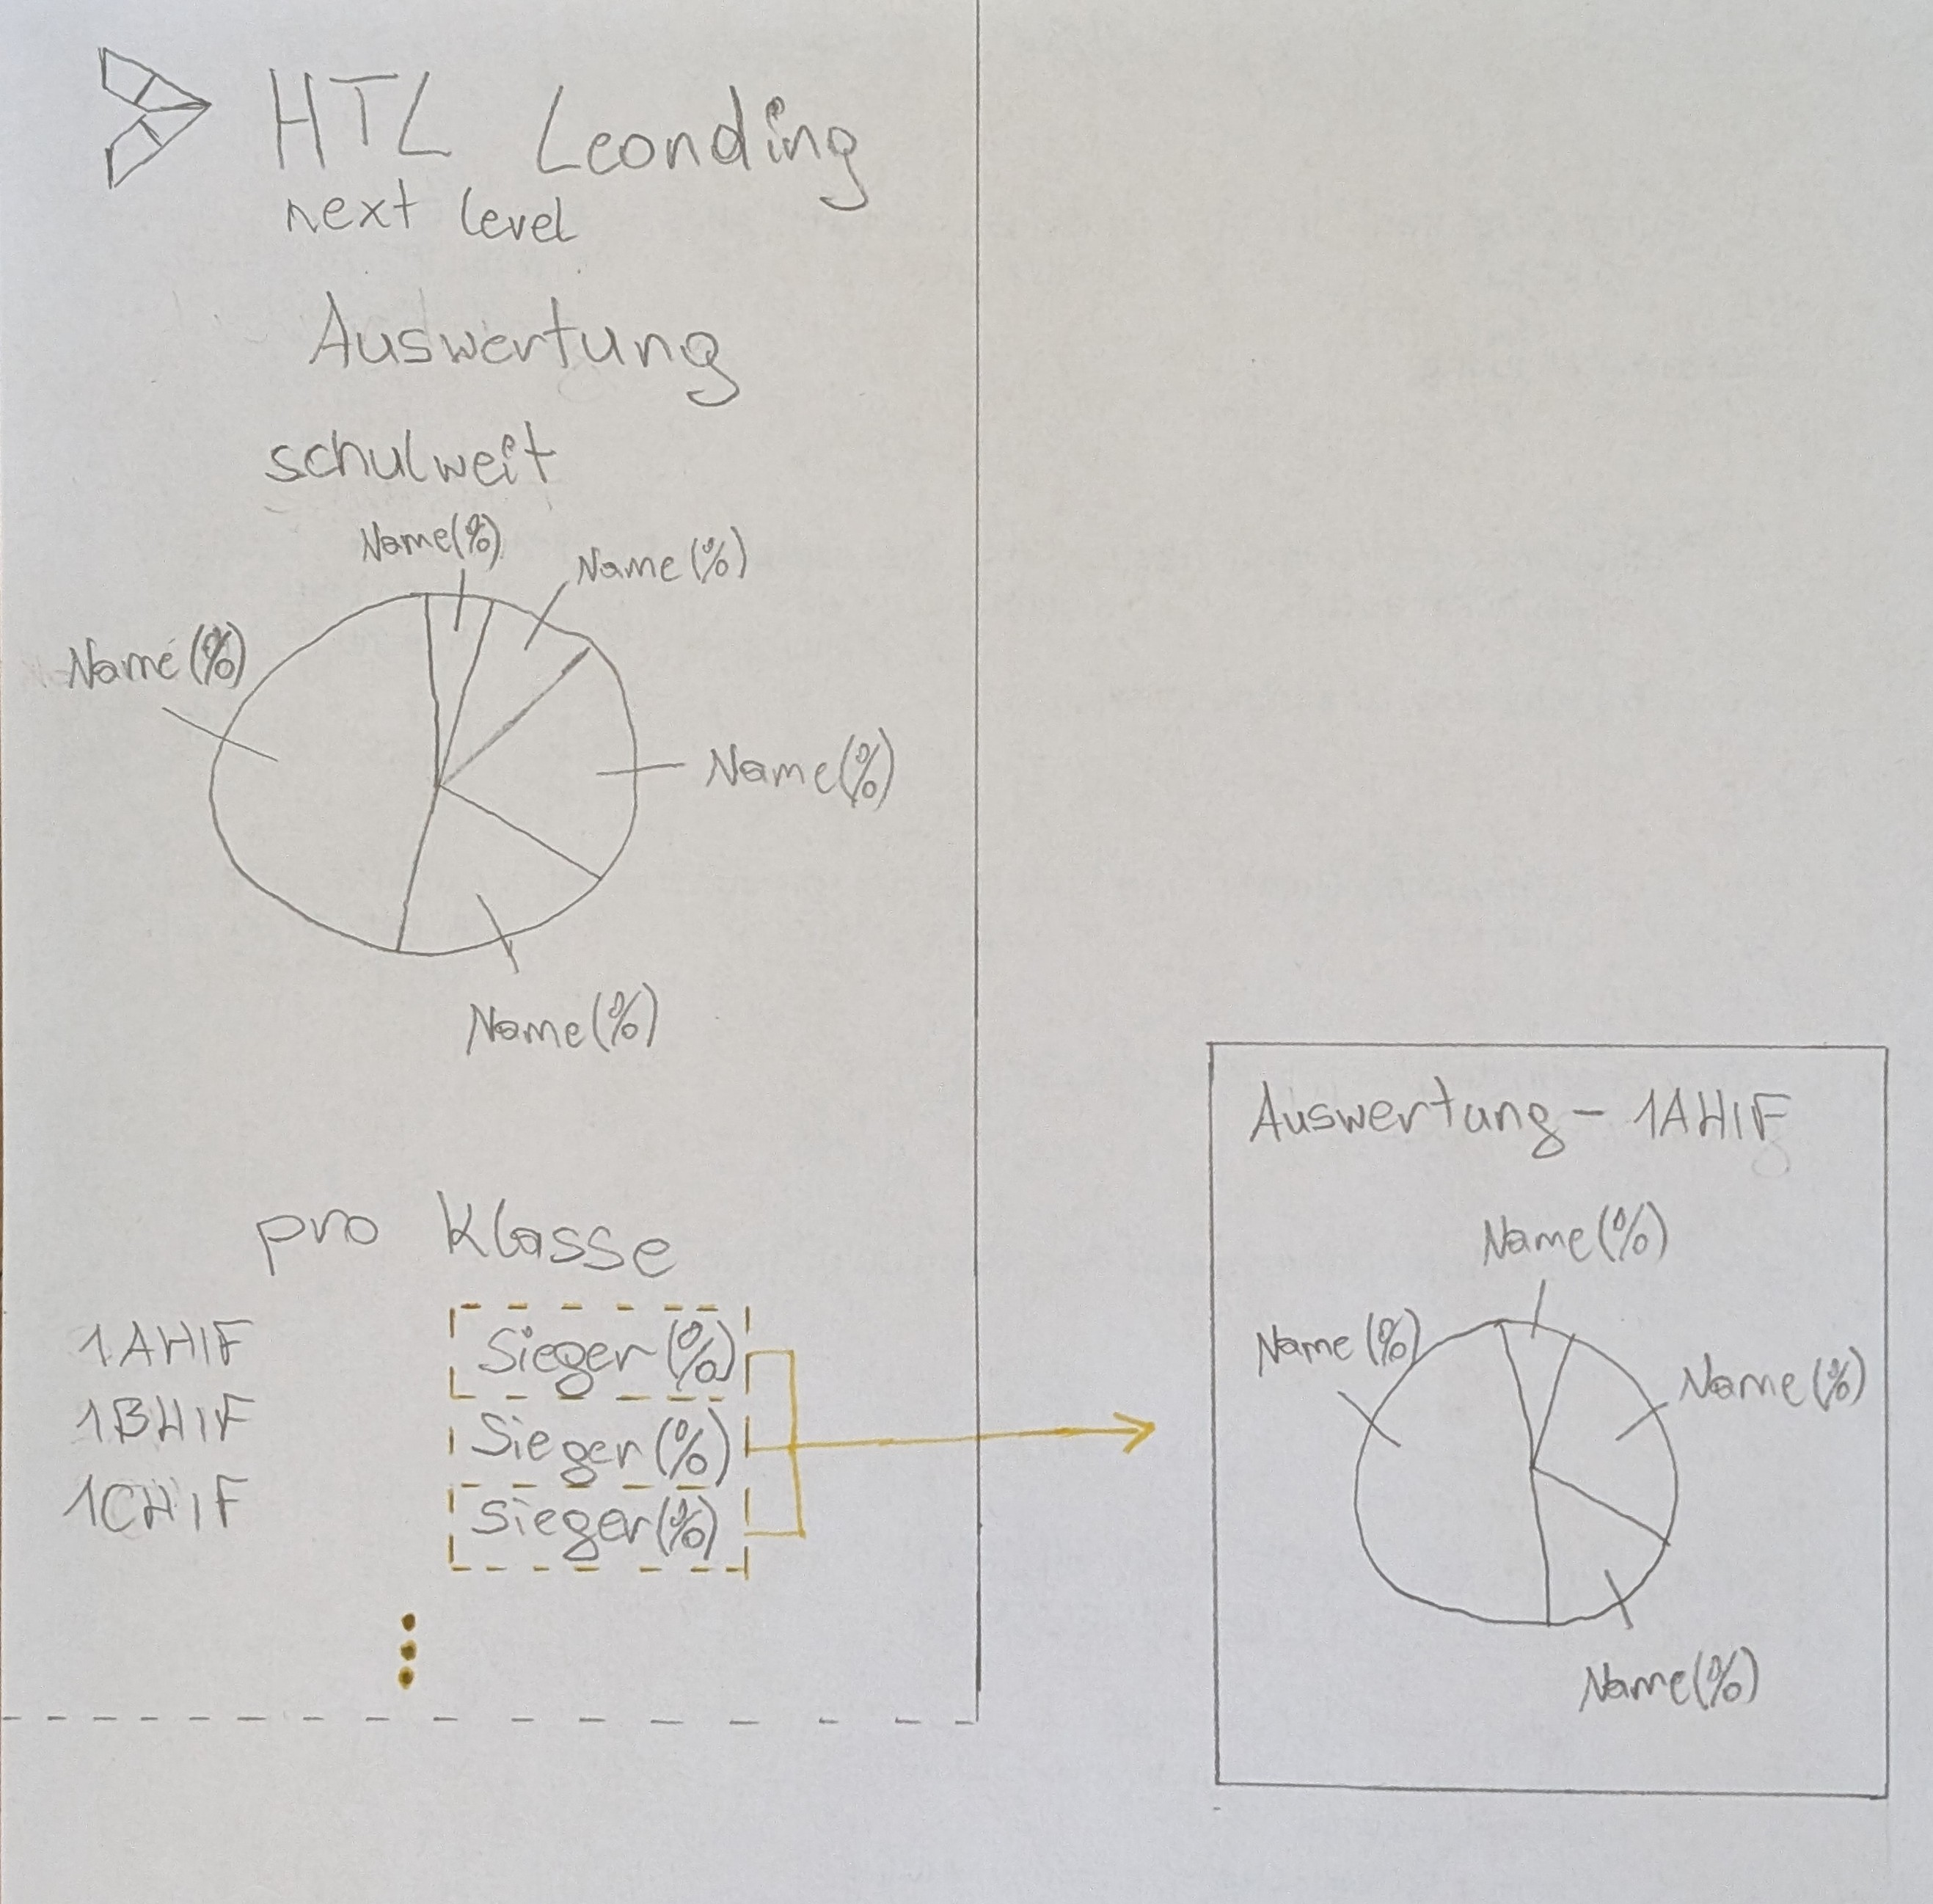 HTL Leonding
next level
Auswertung
schulweit
Name(%)
Name(%)
Name(%)
Name(%)
Name(%)
pro Klasse
1AHIF Sieger(%)
1BHIF Sieger(%)
1CHIF Sieger(%)
Auswertung - 1AHIF
Name(%)
Name(%)
Name(%)
Name(%)